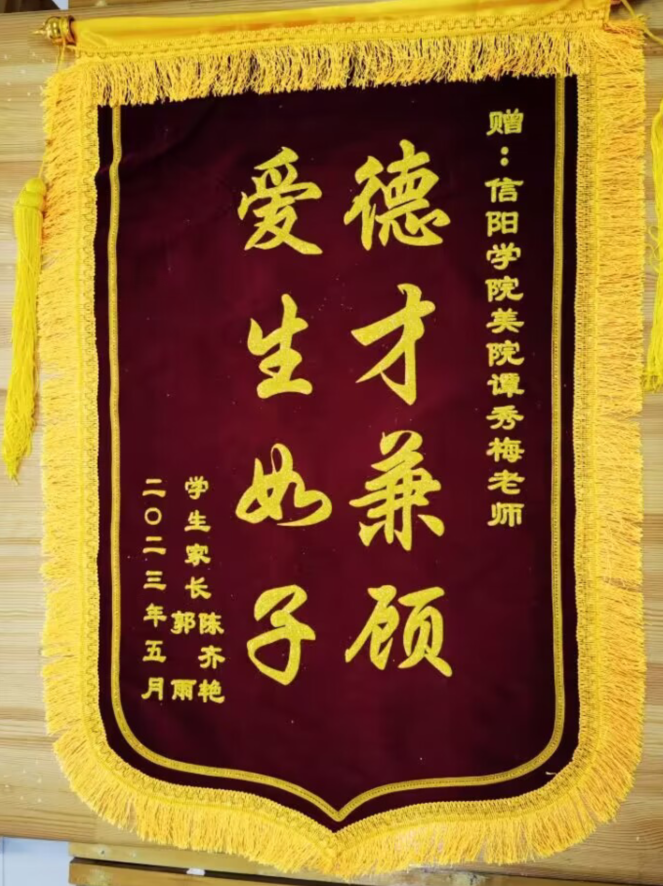 赠：信阳学院美院谭秀梅老师
德才兼顾
爱生如子
学生家长陈齐艳
郭雨
二〇二三年五月